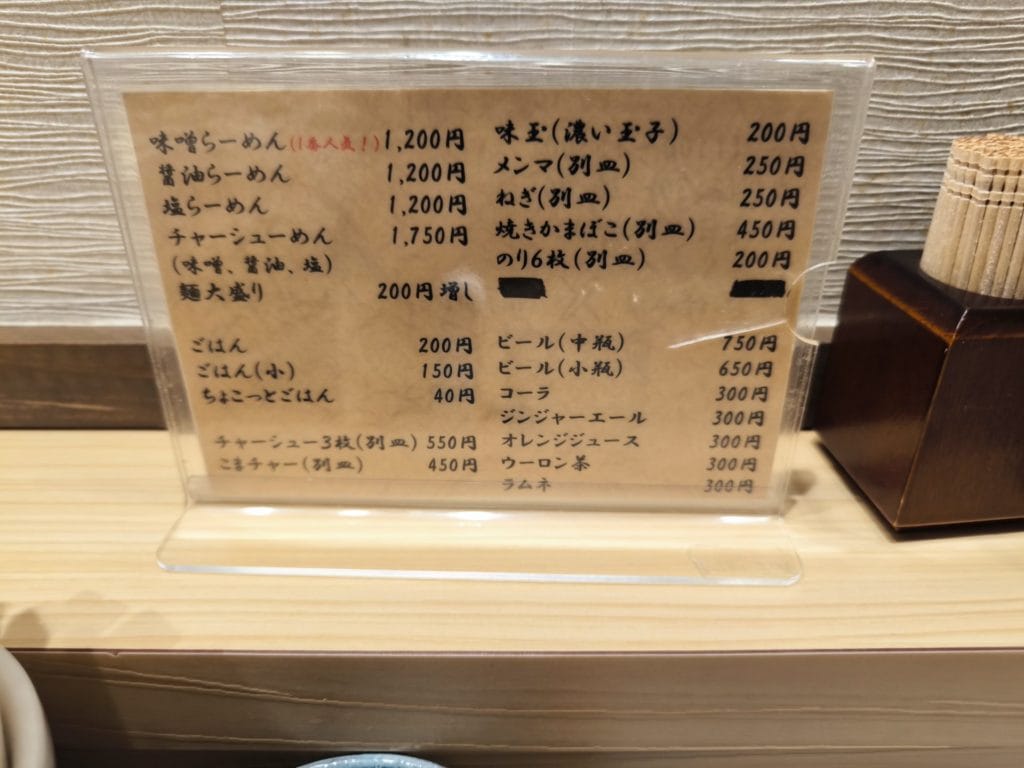 味噌らーめん(1番人気!) 1,200円
醤油らーめん 1,200円
塩らーめん 1,200円
チャーシューめん 1,750円
(味噌、醤油、塩)
麺大盛り 200円増し
ごはん 200円
ごはん(小) 150円
ちょこっとごはん 40円
チャーシュー3枚(別皿) 550円
こまチャー(別皿) 450円
味玉(濃い玉子) 200円
メンマ(別皿) 250円
ねぎ(別皿) 250円
焼きかまぼこ(別皿) 450円
のり6枚(別皿) 200円
ビール(中瓶) 750円
ビール(小瓶) 650円
コーラ 300円
ジンジャーエール 300円
オレンジジュース 300円
ウーロン茶 300円
ラムネ 300円